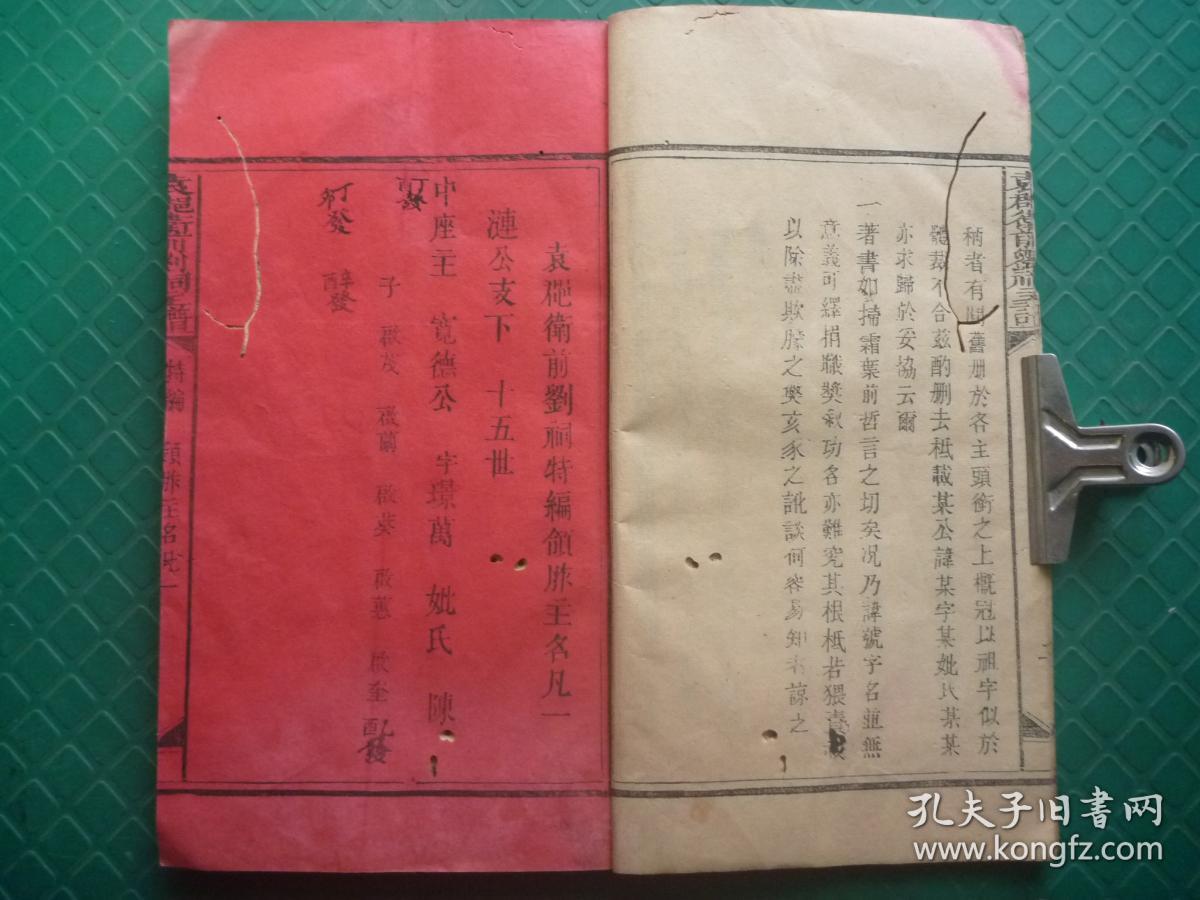 稱者有關舊册於各主頭銜之上概冠以祖字似於
體裁不合茲酌删去秪載某公諱某字某妣氏某某
亦求歸於妥協云爾
一著書如掃霜葉前哲言之切矣況乃諱號字名並無
意義可繹捐職獎叙功名亦難究其根柢若猥責
以除盡欺朦之獘亥豕之訛談何容易知者諒之
袁郡衛前劉祠特編領胙主名凡一
漣公支下 十五世
中座主 寛德公 字璟萬 妣氏 陳
子 啟茂 啟蘭 啟葵 啟蕙 啟至
丁發
辛酉發
特編 領胙主名凡一
孔夫子旧书网
www.kongfz.com